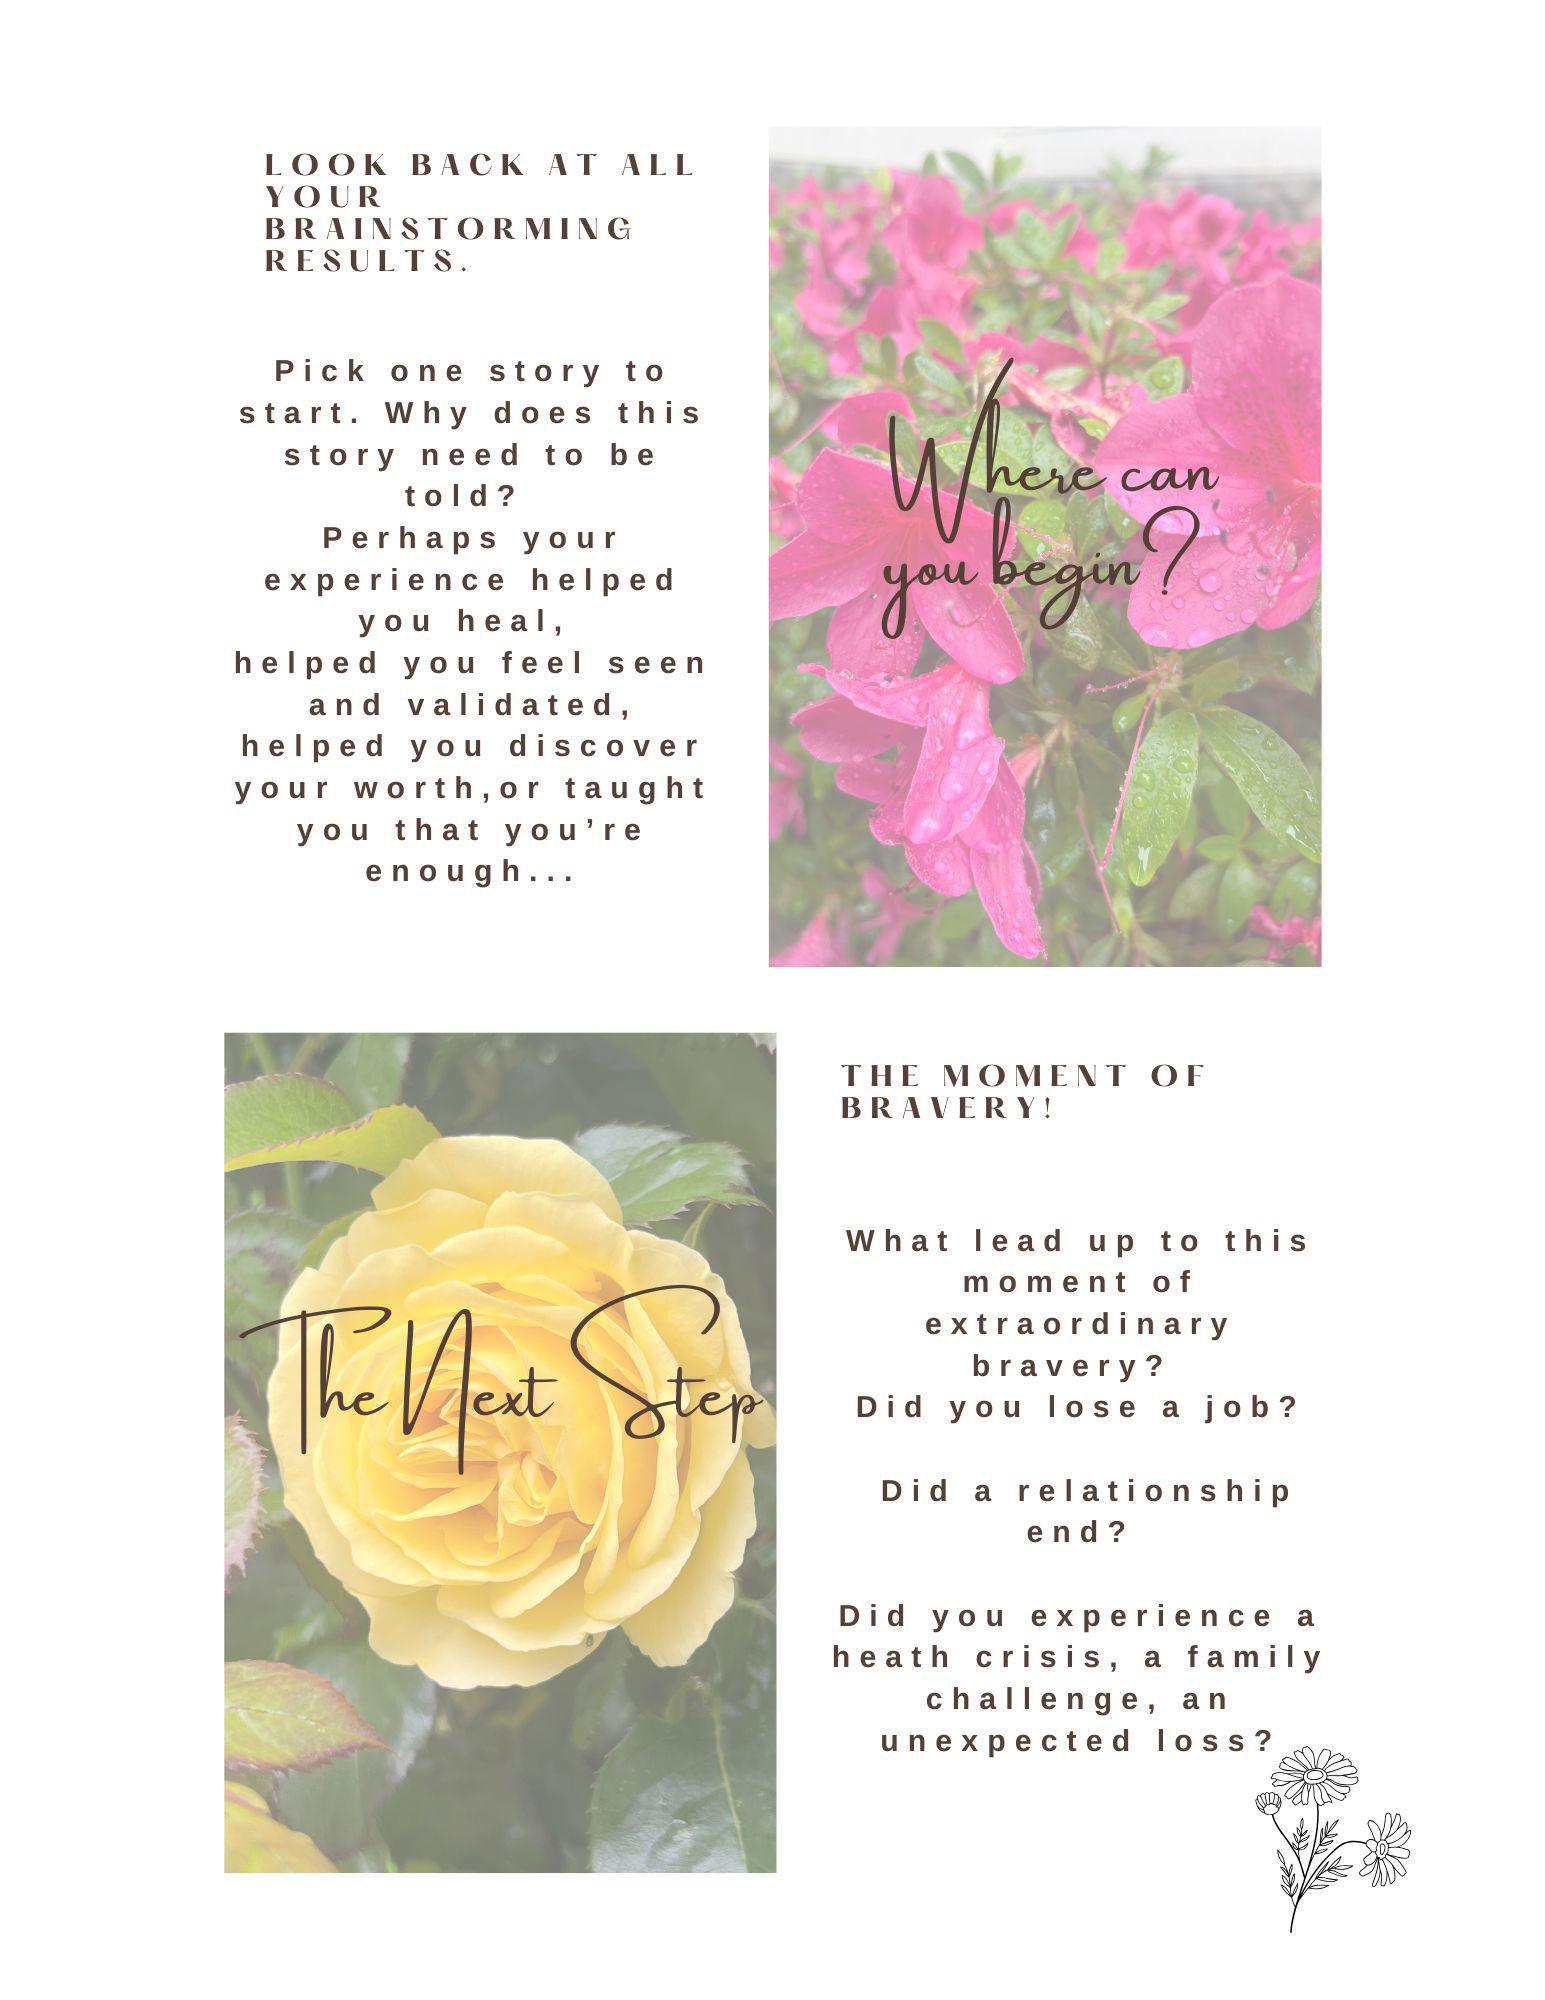 LOOK BACK AT ALL
YOUR
BRAINSTORMING
RESULTS.
Pick one story to
start. Why does this
story need to be
told?
Perhaps your
experience helped
you heal,
helped you feel seen
and validated,
helped you discover
your worth,or taught
you that you’re
enough...
Where can
you begin?
The Next Step
THE MOMENT OF
BRAVERY!
What lead up to this
moment of
extraordinary
bravery?
Did you lose a job?
Did a relationship
end?
Did you experience a
heath crisis, a family
challenge, an
unexpected loss?